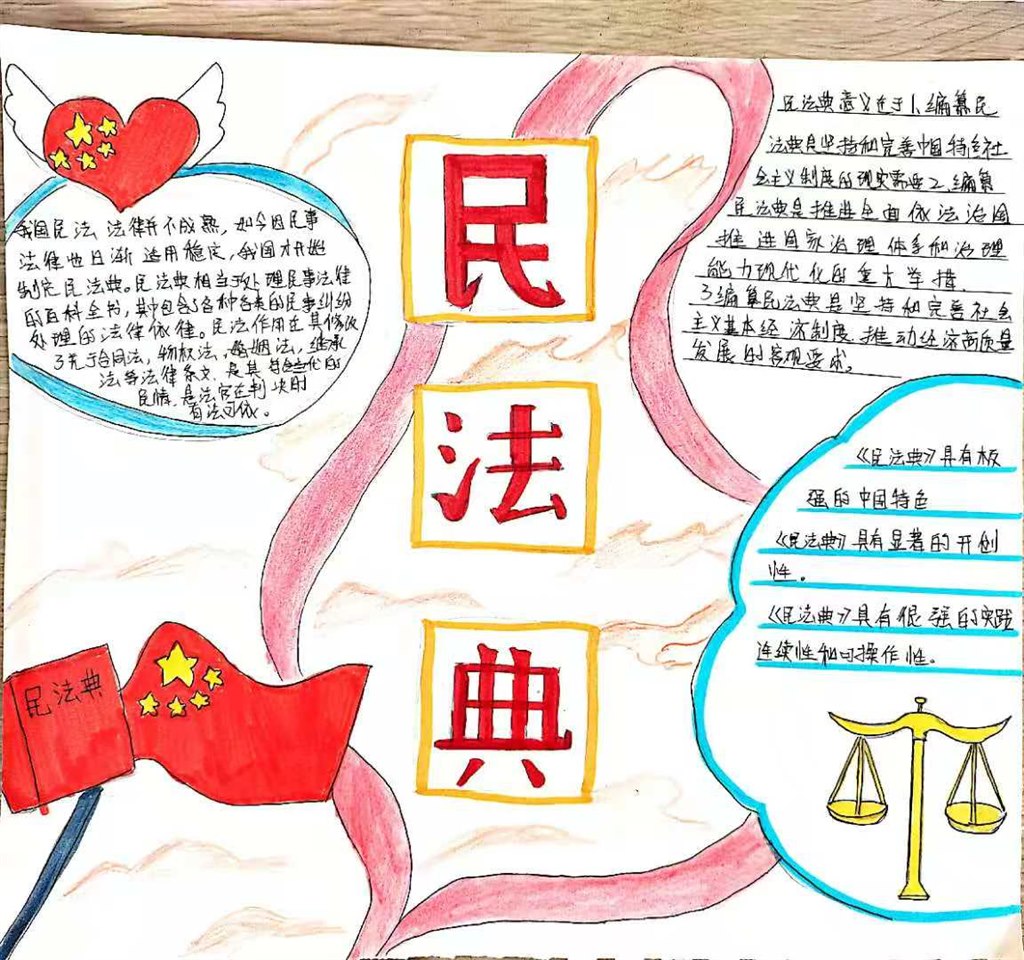 民
法
典
我国民法法律并不成熟，如今因民事
法律也日渐适用稳定，我国才开始
制定民法典。民法典相当于处理民事法律
的百科全书，其中包含各种各类的民事纠纷
处理的法律依律。民法作用在其修改
了先于合同法，物权法，婚姻法，继承
法等法律条文，是其代的
民情，是法官在判决时
有法可依。
民法典意义在于1、编纂民
法典是坚持和完善中国特色社
会主义制度的现实需要2、编纂
民法典是推进全面依法治国
推进国家治理体系和治理
能力现代化的重大举措.
3编纂民法典是坚持和完善社会
主义基本经济制度、推动经济高质量
发展的客观要求。
《民法典》具有极
强的中国特色
《民法典》具有显著的开创
性。
《民法典》具有很强的实践
连续性和可操作性。
民法典